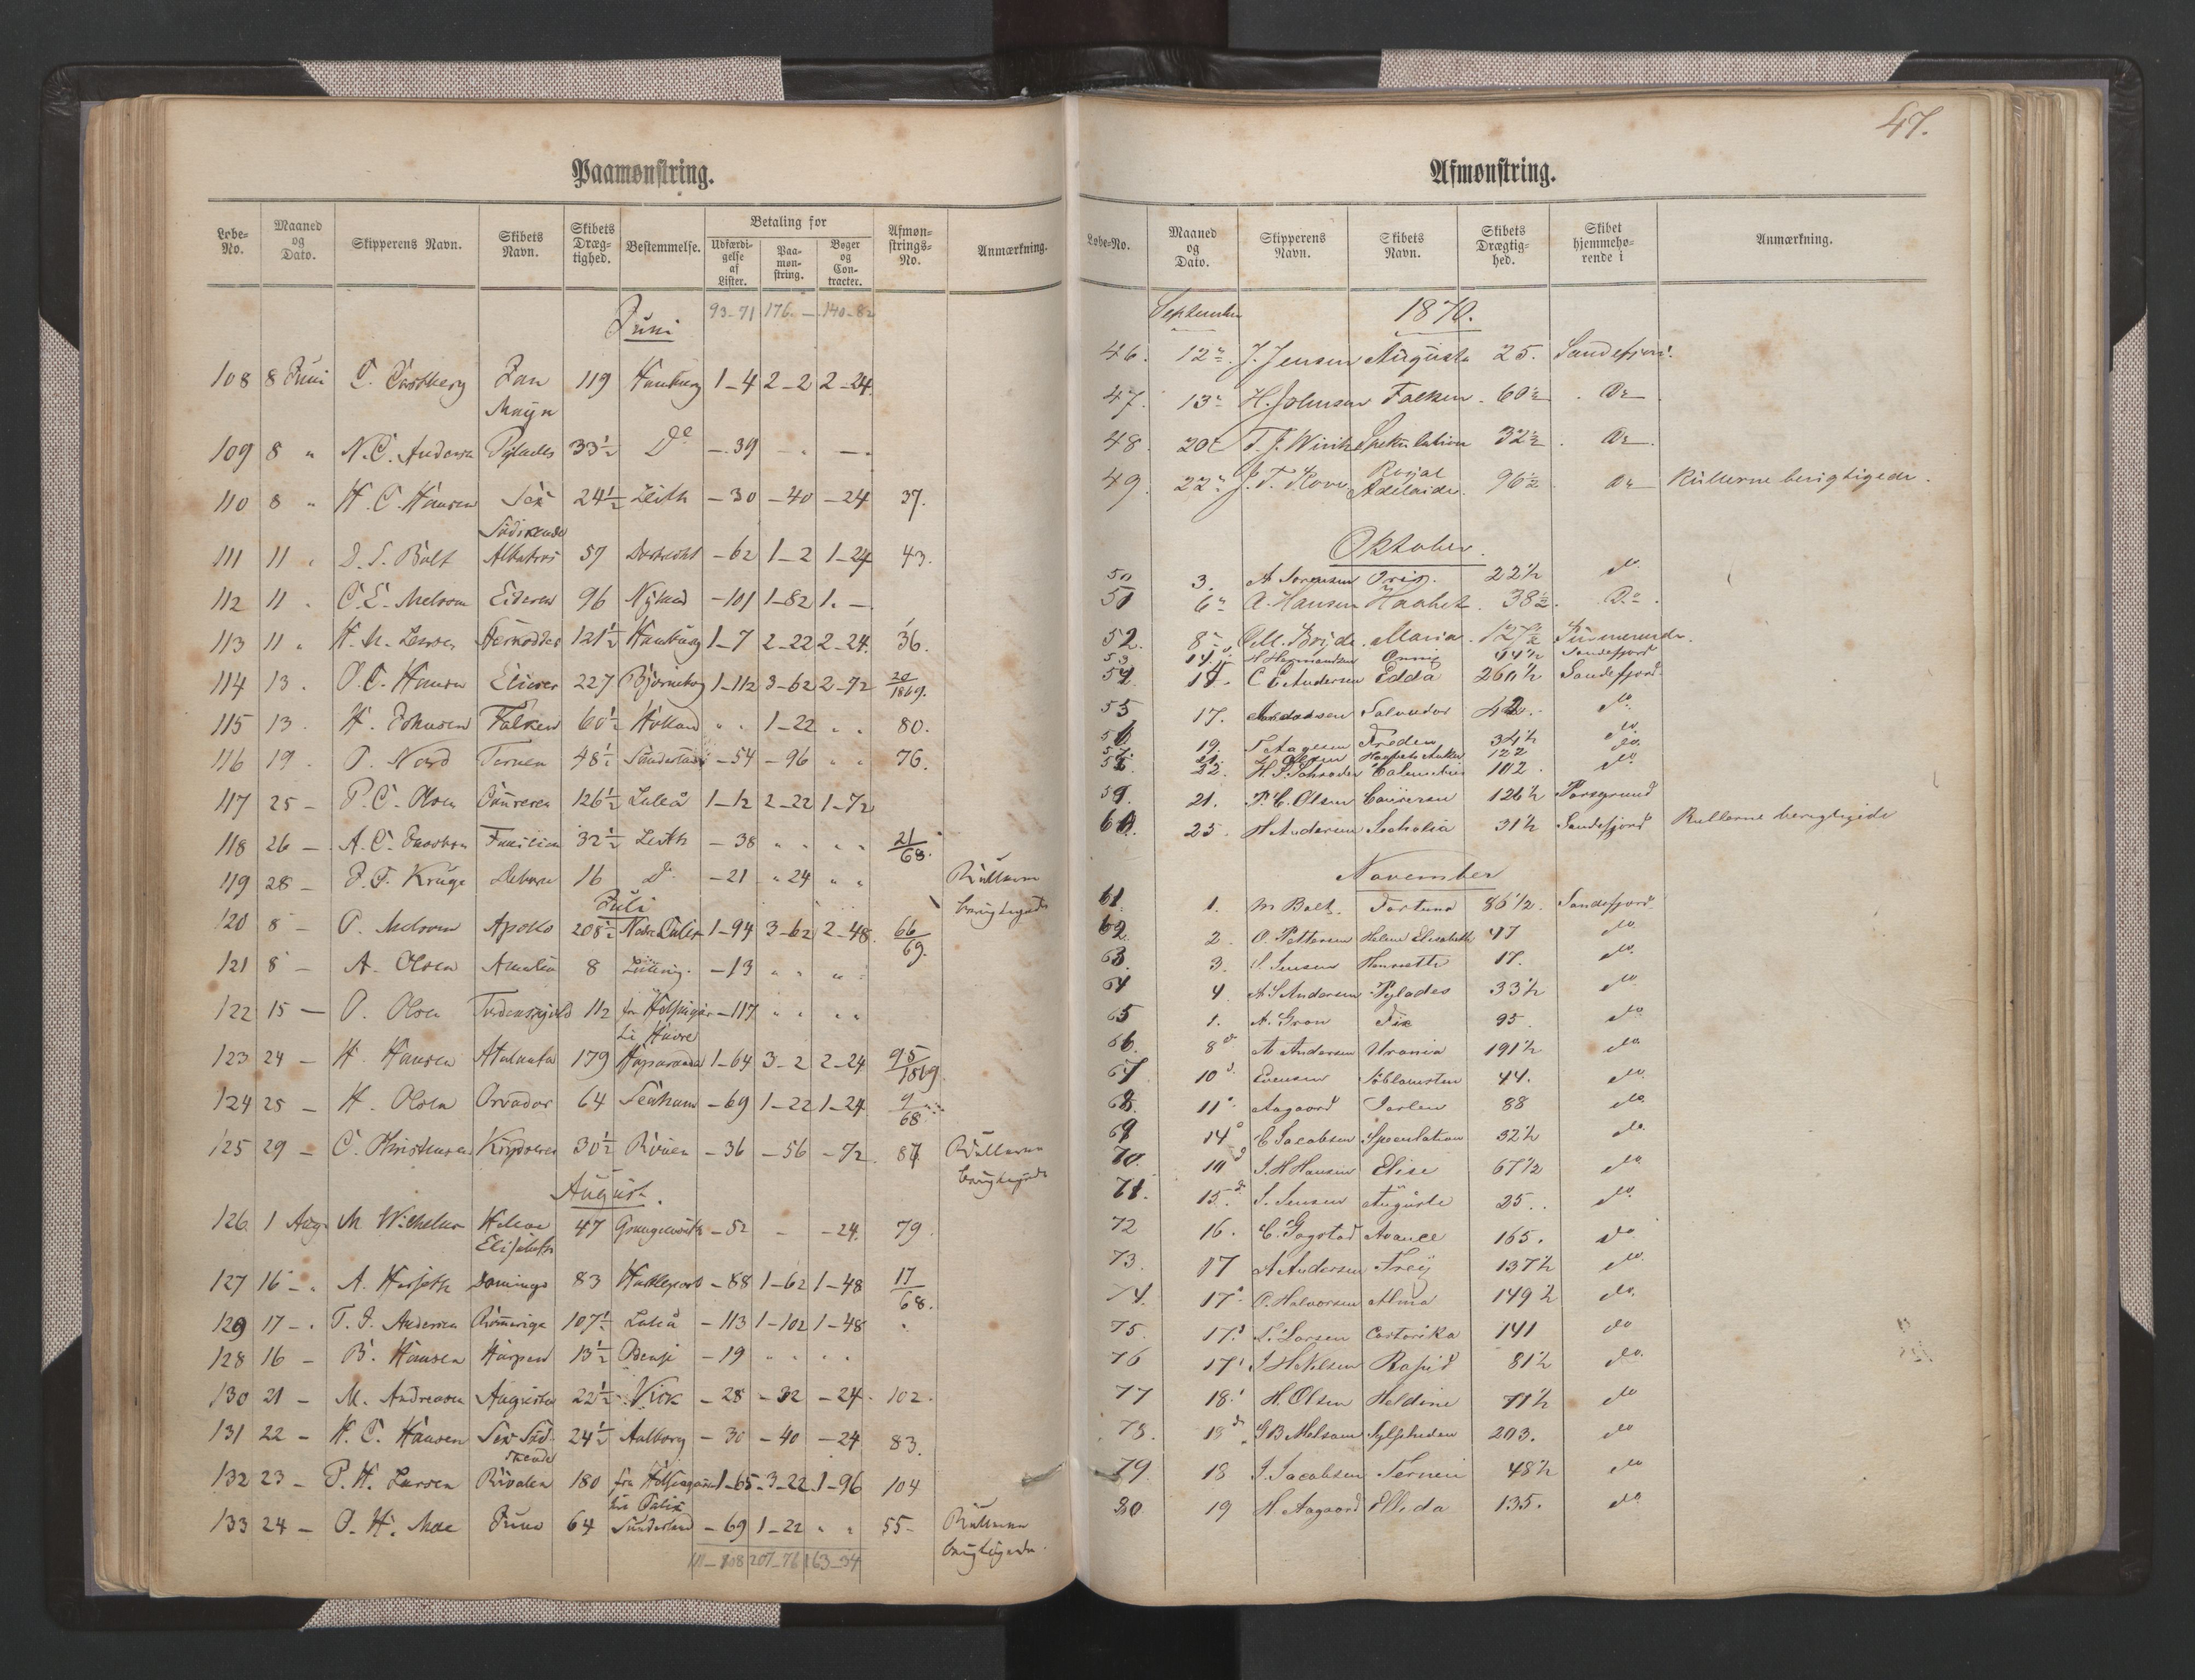 Paamønstring.
Løbe-No. | Maaned og Dato. | Skipperens Navn. | Skibets Navn. | Skibets Dræg-tighed. | Bestemmelse. | Betaling for | Udfærdi-gelse af Lister. | Paa-møn-string. | Bøger og Con-tracter. | Afmøn-strings-No. | Anmærkning.
93-71 | 176. — | 140-82
Juni
108 | 8 Juni | Jan Mayn | 119 | Hamburg | 1-4 | 2-2 | 2-24.
109 | 8 " | N. C. Andersen | Pylades | 33½ | Do | -39 | - | -
110 | 8 " | H. C. Hansen | Sex Södskende | 24½ | Leith | -30 | -40 | -24 | 37.
111 | 11 " | Bolt | Albatros | 57 | Dortrecht | -62 | 1-2 | 1-24 | 43.
112 | 11 | Melsom | Eideren | 96 | Nyland | -101 | 1-82 | 1. -
113 | 11 " | H. M. Larsen | 121½ | Hamburg | 1-7 | 2-22 | 2-24. | 36.
114 | 13 . | O. C. Hansen | Elieser | 227 | Björneborg | 1-112 | 3-62 | 2-72 | 20/1869.
115 | 13 . | H. Johnsen | Falken | 60½ | Holland | " " | 1-22 | " " | 80.
116 | 19 . | O. Nord | Ternen | 48½ | Sunderland | -54 | -96 | " " | 76.
117 | 25 - | P. C. Olsen | Coureren | 126½ | Luleå | 1-12 | 2-22 | 1-72
118 | 26 - | A. C. Jacobsen | 32½ | Leith | -38 | " " | " " | 21/68.
119 | 28 - | J. F. Krüge | 16 | Do | -21 | " 24 | " " | Rullerne berigtigede
Juli
120 | 8 - | O. Melsom | Apollo | 208½ | 1-94 | 3-62 | 2-48. | 66/69.
121 | 8 - | A. Olsen | Amalia | 8 | -13 | " " | " "
122 | 15 — | O. Olsen | Tordenskjold | 112 | fra Helsingör til Havre | -117 | " " | " "
123 | 24 - | H. Hansen | Atalanta | 179 | Haparanda | 1-64 | 3-2 | 2-24 | 95/1869
124 | 25 - | H. Olsen | 64 | Seaham | -69 | 1-22 | 1-24 | 9/68
125 | 29 - | C. Christensen | 30½ | Rouen | -36 | -56 | -72. | 87 | Rullerne berigtigede
August.
126. | 1 Aug. | M Wilhelmsen | Helene Elisabeth | 47 | Grangemouth | -52 | - | -24. | 79.
127 | 16 - " | Domingo | 83 | Hartlepool | -88 | 1-62 | 1-48 | 17/68.
129 | 17 - . | T. J. Andersen | Romerige | 107½ | Luleå | -113 | 1-102 | 1-48 | "
128 | 16 - | B. Hansen | Harpen | 13½ | -19 | " " | " "
130 | 21 - | M. Andreasen | Augusta | 22½ | -28 | -32 | -24. | 102.
131 | 22 - | H. C. Hansen | Sex Södskende | 24½ | Aalborg | -30 | -40 | -24 | 83.
132 | 23 - | P. H. Larsen | Rivalen | 180 | fra Helsingör til Calix | 1-65 | 3-22 | 1-96 | 104
133 | 24 - | O. H. Moe | Juno | 64 | Sunderland | -69 | 1-22 | " " | 55- | Rullerne berigtigede.
111-108 | 207-76 | 163-34
47.
Afmønstring.
Løbe-No. | Maaned og Dato. | Skipperens Navn. | Skibets Navn. | Skibets Drægtig-hed. | Skibet hjemmehø-rende i | Anmærkning.
September 1870.
46. | 12te. | J. Jensen | Augusta | 25. | Sandefjord.
47. | 13te | H. Johnsen | Falken | 60½ | Do
48. | 20de | T. J. Wirik | Spekulation | 32½ | Do
49. | 22de | J. T. Hove | Royal Adelaide. | 96½ | Do | Rullerne berigtigede.
Oktober.
50 | 3. | A Sørensen | 22½ | do
51 | 6te | A. Hansen | Haabet | 38½ | Do.
52. | 8de | Maria | 127½
53 | 14. | H Hermansen | 44½ | Sandefjord
54. | 14. | C C Andersen | Edda | 260½ | Sandefjord
55 | 17. | Salvador | 42. | do.
56 | 19. | T Aagesen | Freden | 34½ | do.
57. | 21. | Olsen | Haabets Anker | 122 | do.
58. | 22. | H. J. Schrøder | 102 | do
59. | 21. | P. C. Olsen | Coureren | 126½ | Porsgrund
60. | 25. | H Andersen | 31½ | Sandefjord | Rullerne berigtigede
November
61. | 1. | M Bolt. | Fortuna | 86½. | Sandefjord
62. | 2. | O. Pettersen | Helene Elisabeth | 47 | do.
63. | 3. | Jensen | Henriette | 17. | do.
64 | 4 | N C Andersen | Pylades | 33½ | do
65 | 1. | A. Gron | Fix | 95. | do
66. | 8de | A Andersen | Urania | 191½ | do
67 | 10de | Evensen | Söblomsten | 44. | do
68. | 11te | Aagaard | Jarlen | 88 | do.
69 | 14de | C Jacobsen | Speculation | 32½ | do
70. | 14de | J. H Hansen | Elise | 67½ | do
71. | 15de | J. Jensen | Auguste | 25.. | do
72 | 16. | C. Gogstad | Avance | 165. | do
73. | 17 | A Andersen | Freÿ | 137½ | do.
74. | 17de | O. Halvorsen | Alma | 149½ | do.
75. | 17de | T. Larsen | Costarika | 141 | do
76 | 17de | J H Nelsen | Rapid | 81½ | do.
77 | 18de | H. Olsen | Heldine | 71½ | do
78. | 18de | G B Melsom | Sylphiden | 203. | do
79. | 18 | J. Jacobsen | Ternen | 48½ | do
80. | 19 | H. Aagaard | Ellida | 135. | do